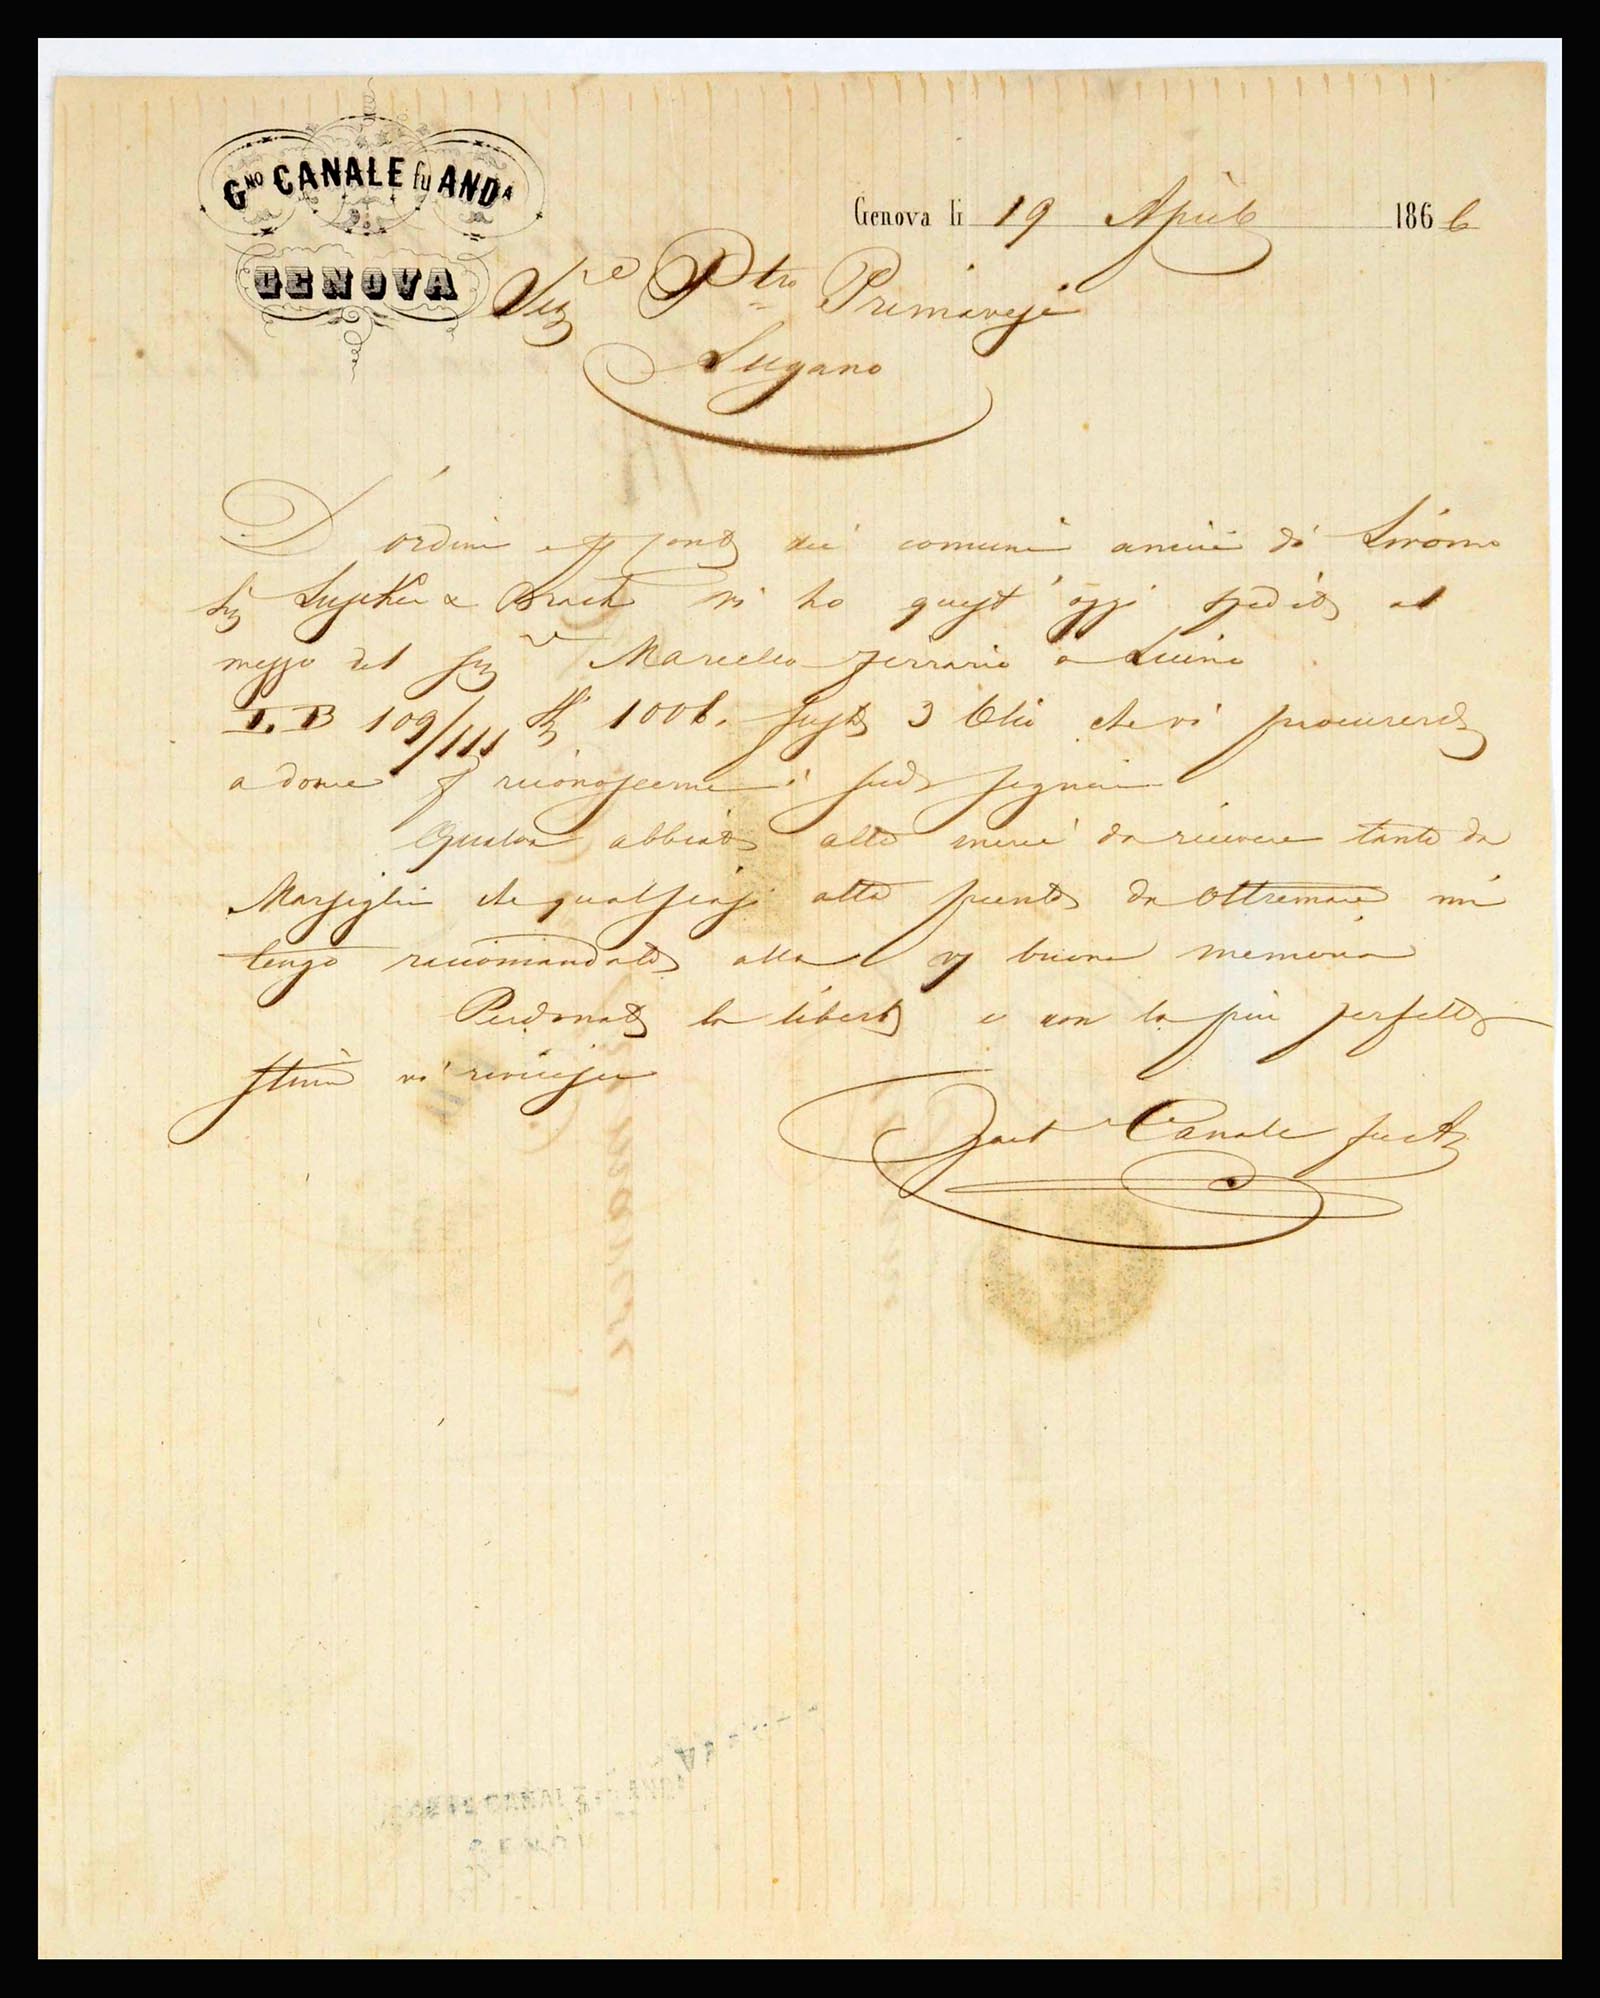 GNO CANALE fu ANDA
GENOVA
Genova li 19 Aprile 1866
Sigre Ptro Primavesi
Lugano
D'ordine e p conto dei comuni amici di Livorno
Sig & Brach vi ho quest'oggi spedito al
mezzo del Sigr Marcello Ferrario a Luino
I. B 109/111 K 1008. Fusti 3 Olio che vi procurerete
a dome p riconoscerne i segnari
Qualora abbiate altre merci da ricevere tanto da
Marsiglia che qualsiasi altro punto da Oltremare mi
tengo raccomandato alla vs buona memoria
Perdonate la libertà e con la più perfetta
stima vi riverisco
Gaet Canale fu A